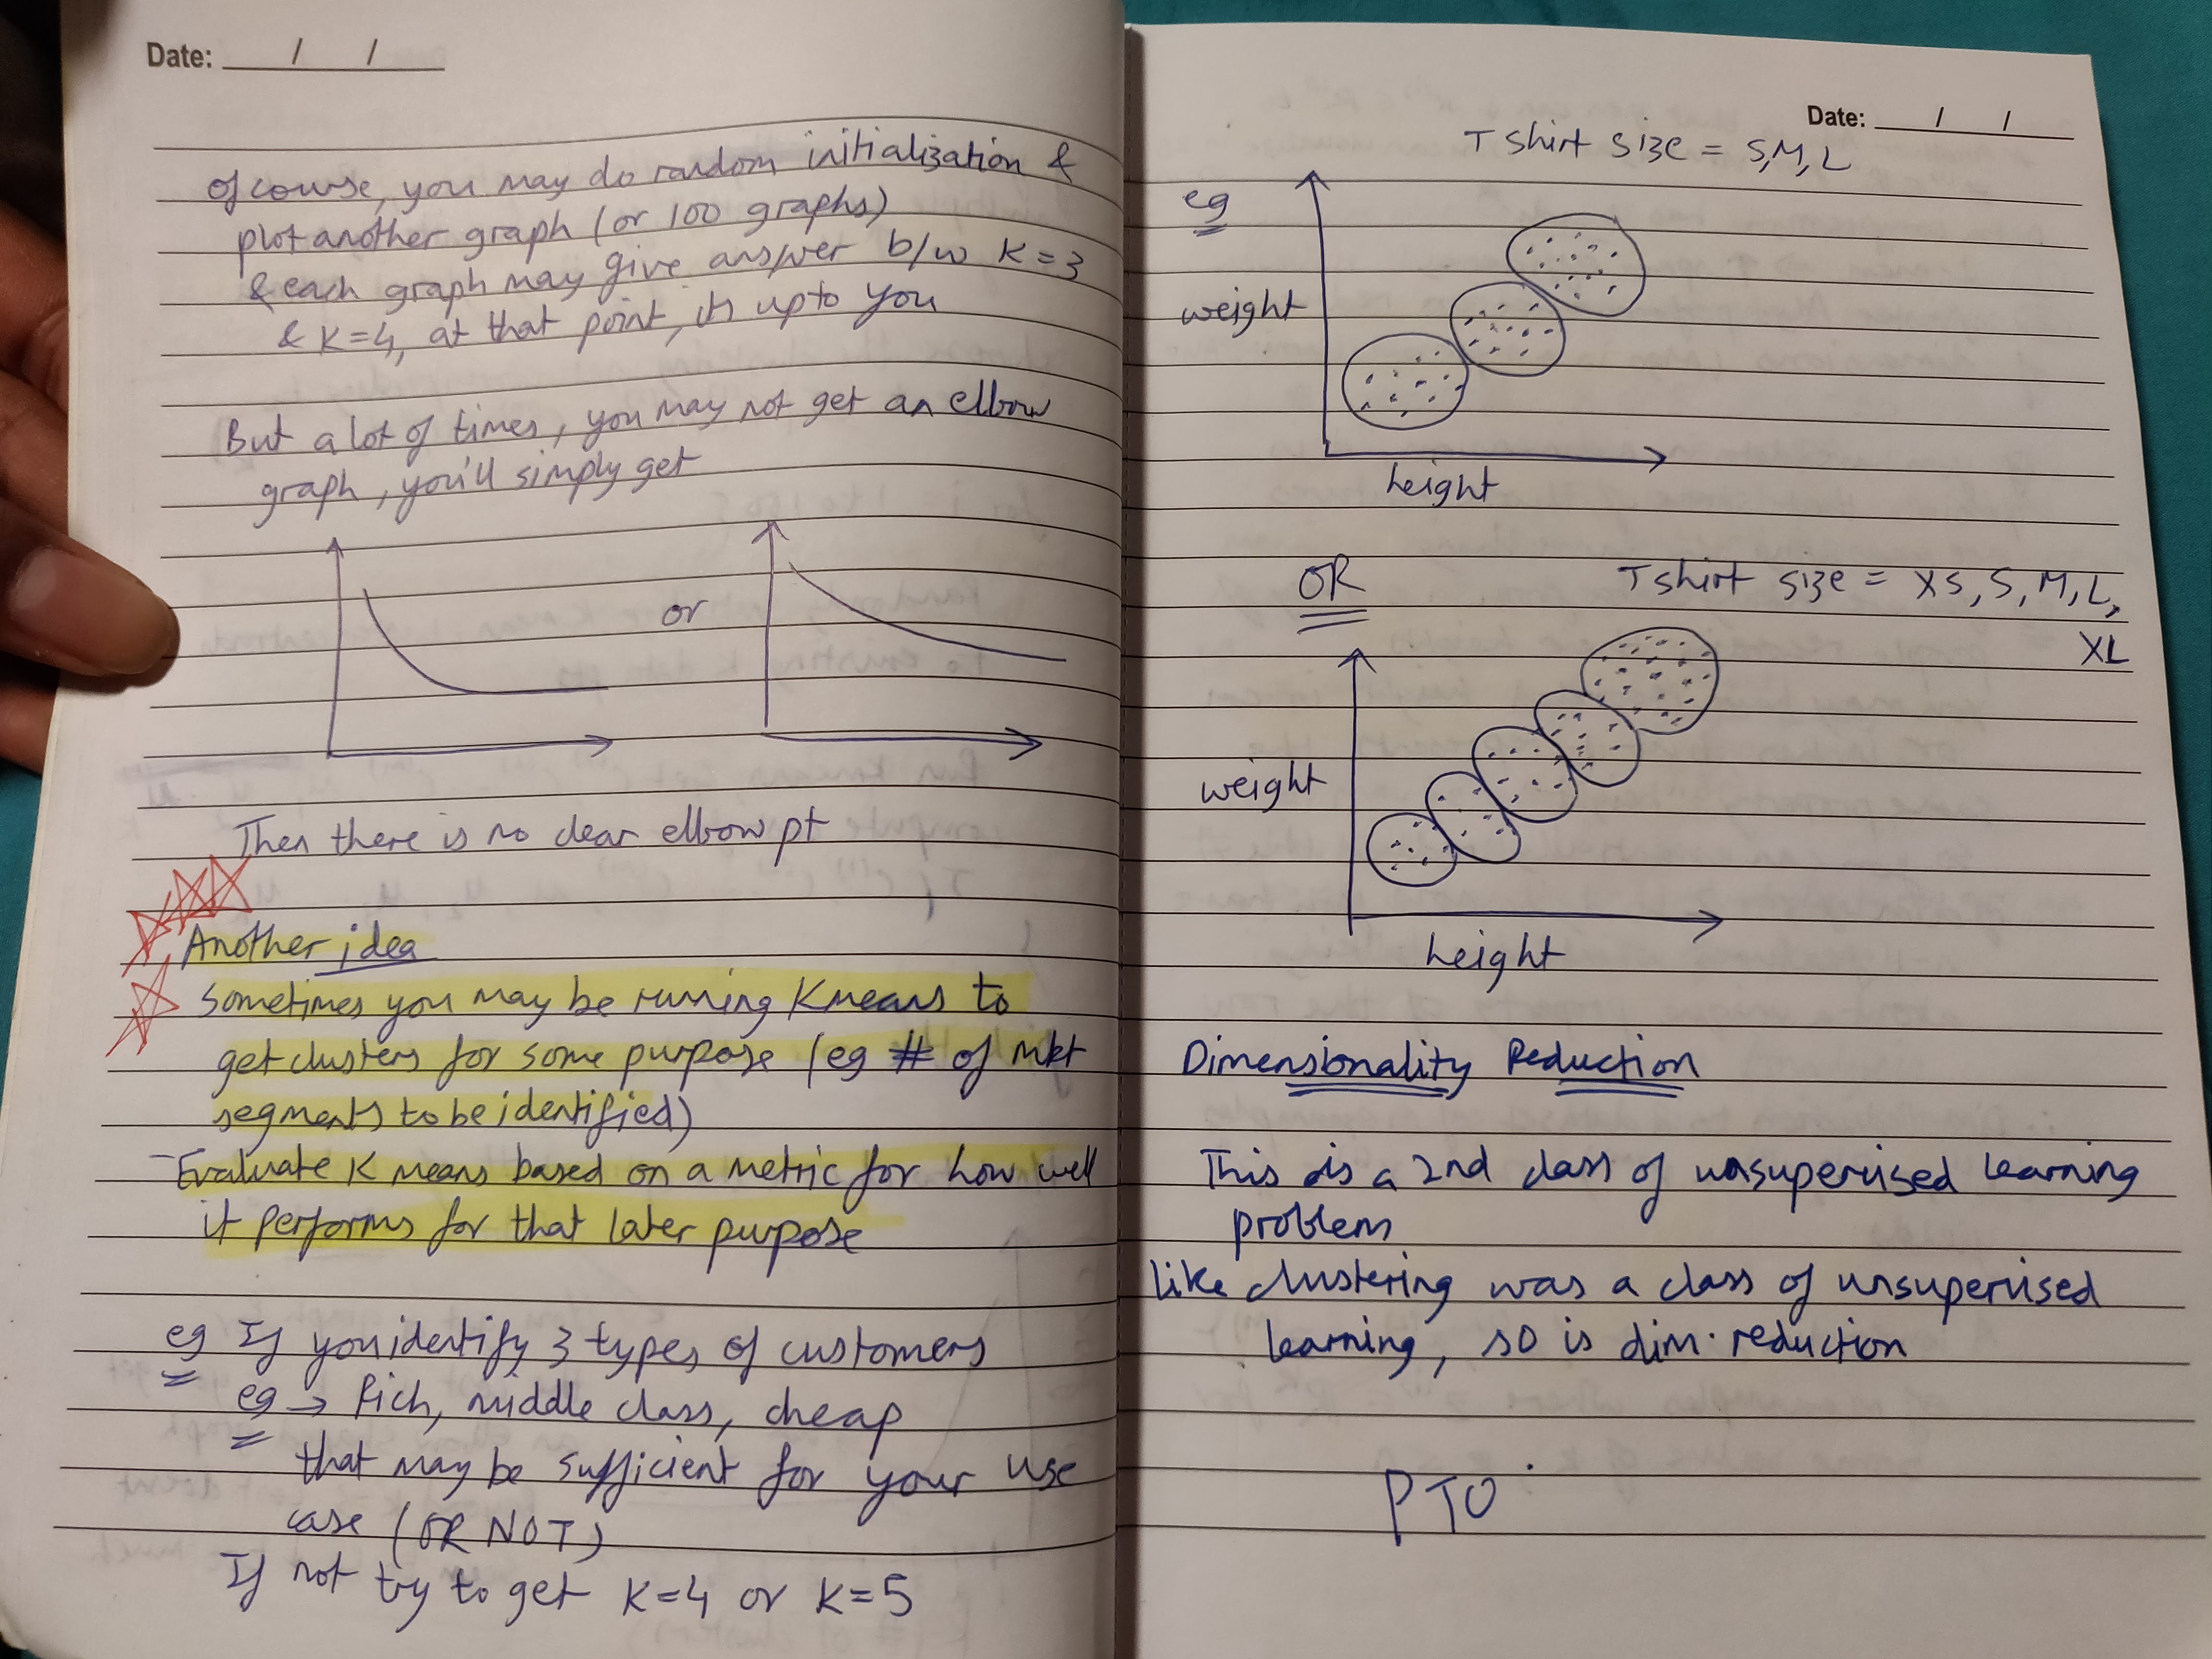 Date: ___/___/___
Of course, you may do random initialization &
plot another graph (or 100 graphs)
& each graph may give answer b/w K=3
& K=4, at that point, its upto you
But a lot of times, you may not get an elbow
graph, you'll simply get
or
Then there is no clear elbow pt
Another idea
Sometimes you may be running K means to
get clusters for some purpose (eg # of mkt
segments to be identified)
- Evaluate K means based on a metric for how well
it performs for that later purpose
eg If you identify 3 types of customers
eg → Rich, middle class, cheap
that may be sufficient for your use
case (OR NOT)
If not try to get K=4 or K=5
Date: ___/___/___
T shirt size = S, M, L
eg
weight
height
OR
T shirt size = XS, S, M, L,
XL
weight
height
Dimensionality Reduction
This is a 2nd class of unsupervised learning
problem
like clustering was a class of unsupervised
learning, so is dim. reduction
PTO